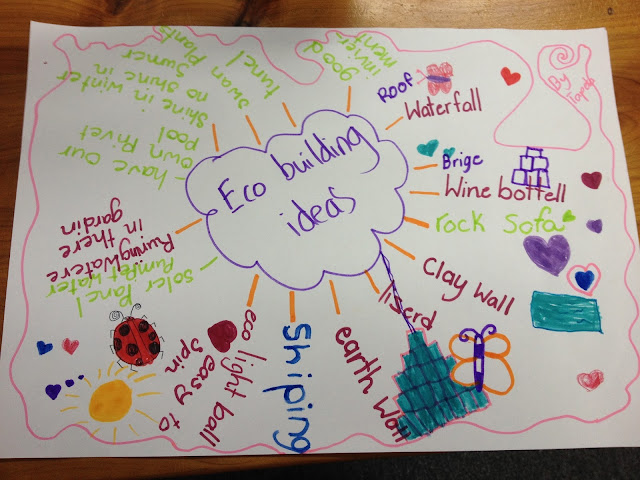 Eco building
ideas
good
invier
ment
ROOF
Waterfall
Brige
Wine bottell
rock Sofa
Clay Wall
liserd
earth Wall
Shiping
eco light ball
easy to
spin
soler Panel
Pumpet water
Runing Watere
in there
gardin
- have our
own Privet
Pool
Shine in winter
no shine in
Sumer
swan Plants
tunel
By